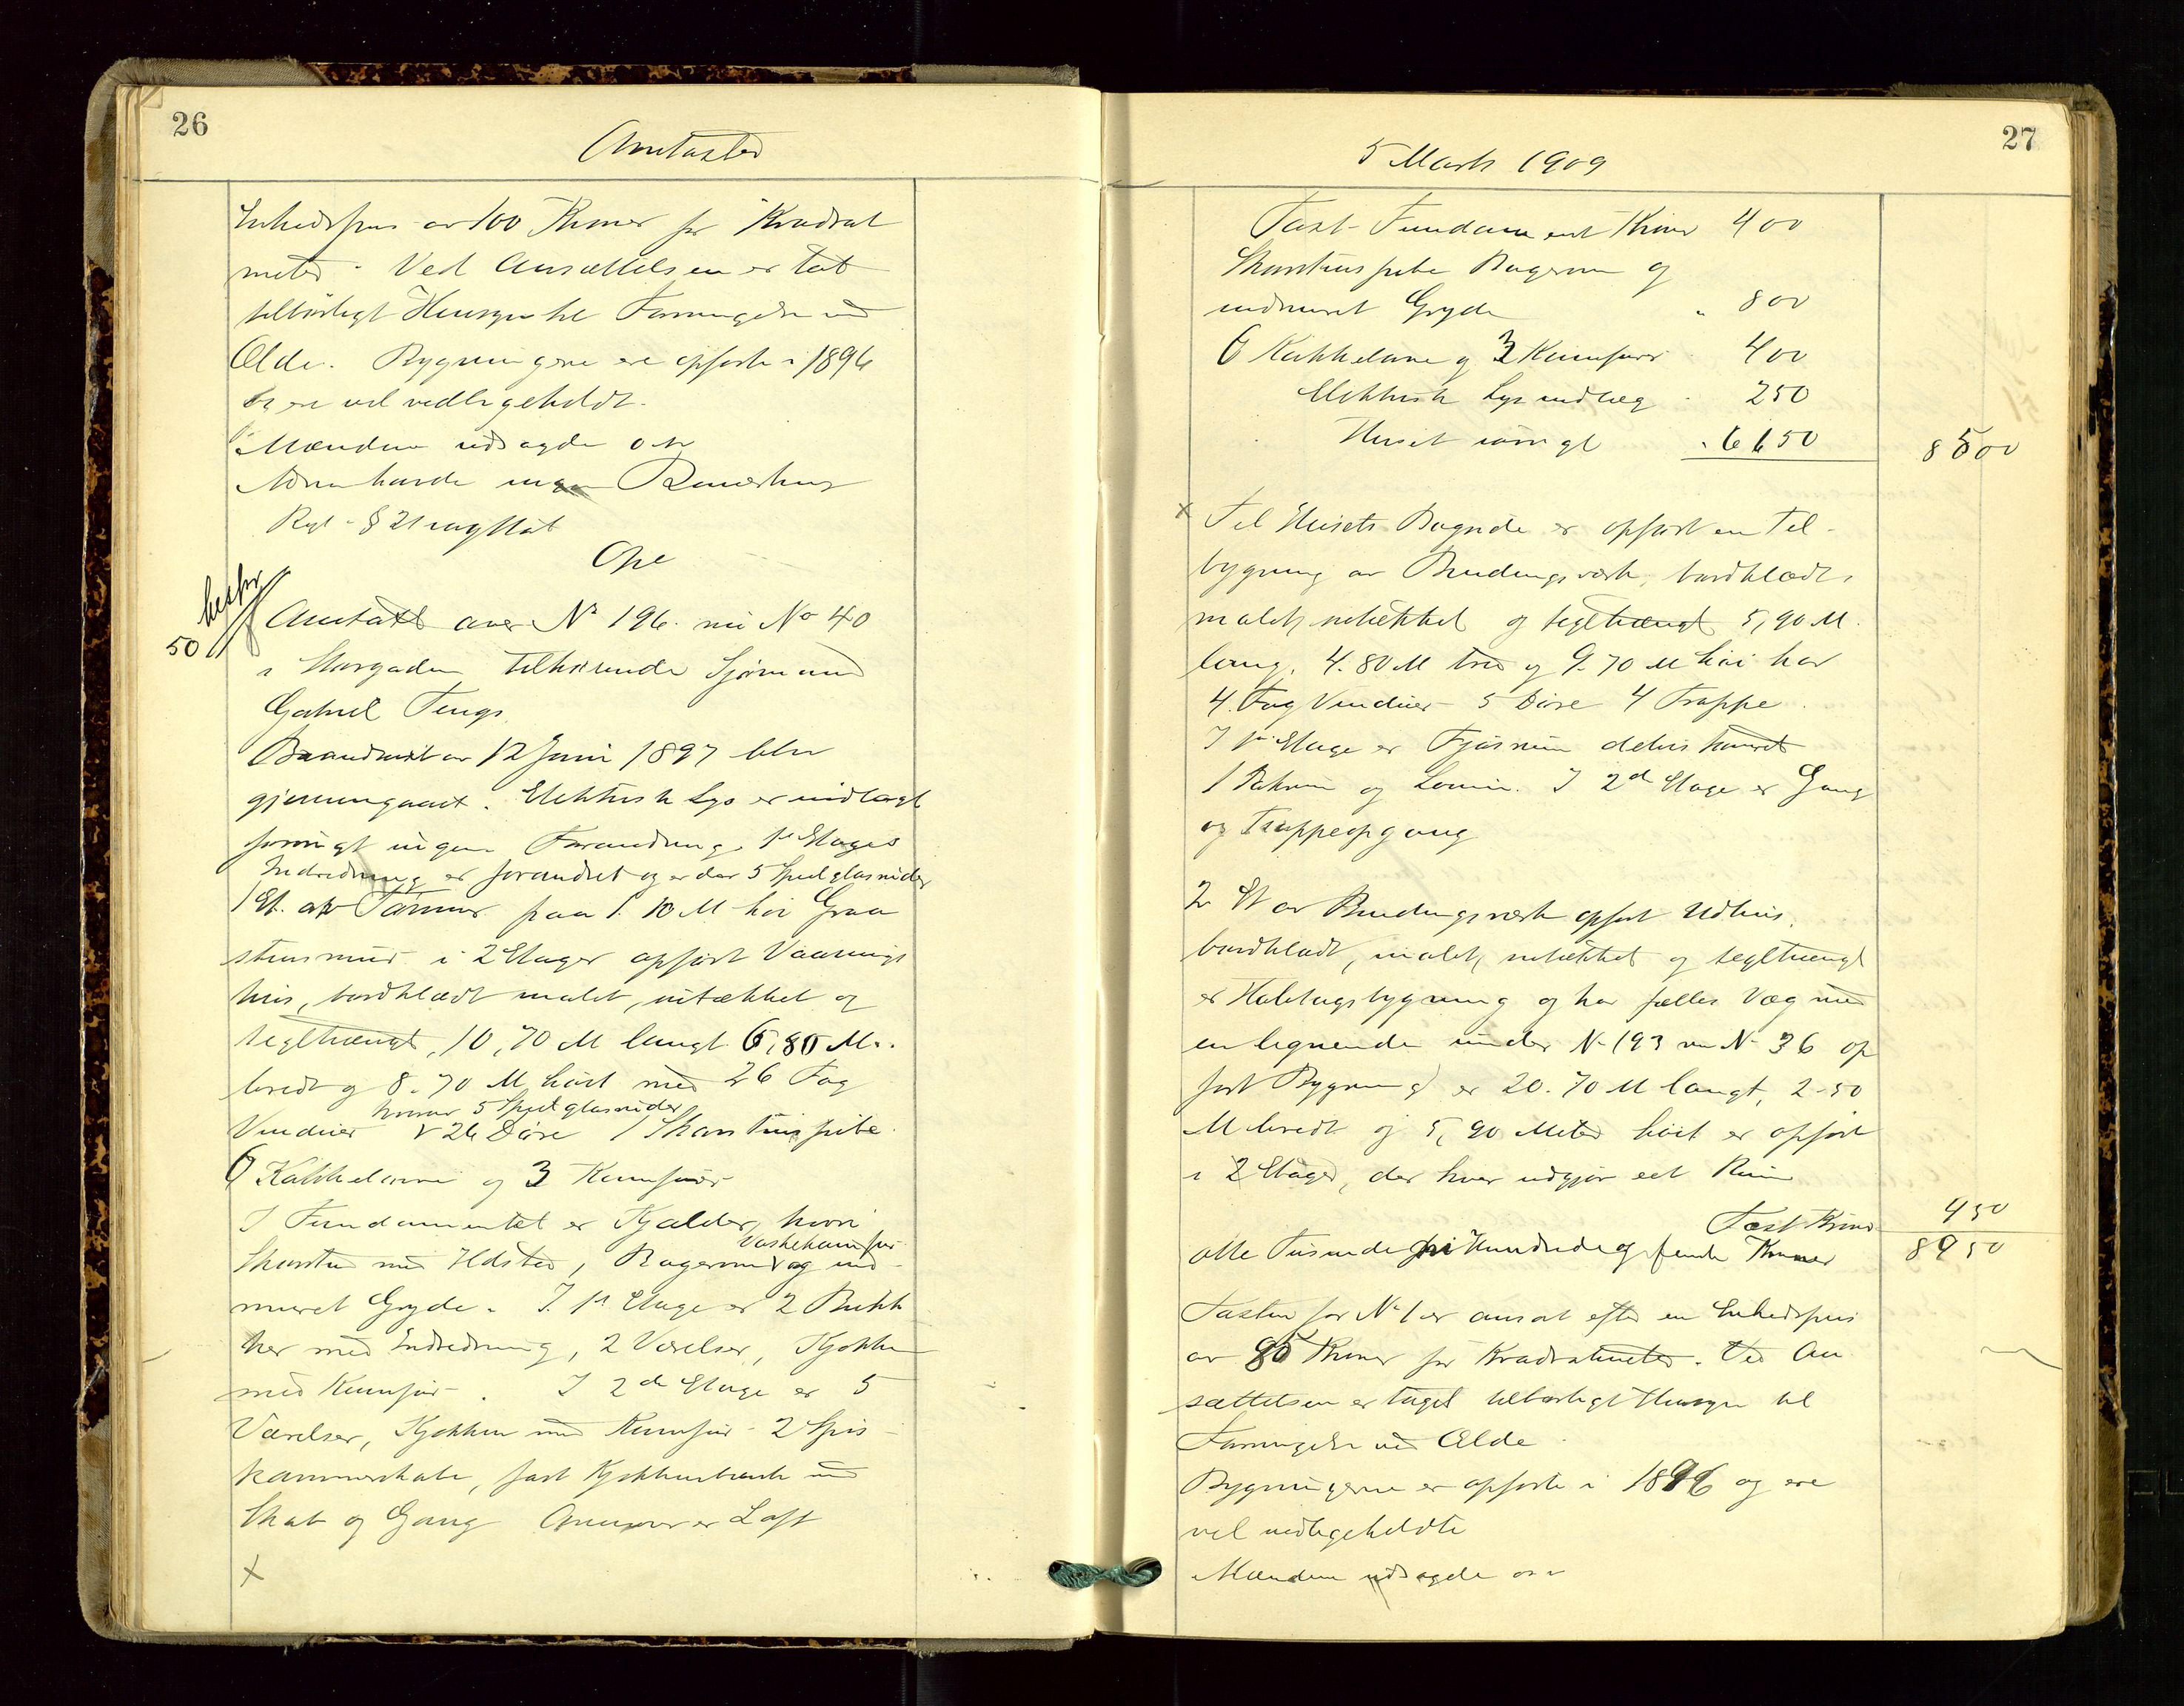 26
Omtaxter
Enhedspris av 100 Kroner pr Kvadrat
meter. Ved Ansættelsen er tat
tilbørligt Hensyn til Forringelse ved
Ælde. Bygningerne ere opførte i 1896
og ere vel vedligeholdt.
Mændene udsagde osv
havde ingen
Regl. § 21 iagttat
Ope
beskr
50
Omtaxt over No 196. nu No 40
i Storgaden tilhørende Sjømand
Gabriel Tengs.
Brandtaxt av 12 Juni 1897 blev
gjennemgaaet. Elektrisk Lys er indlagt
forøvrigt ingen Forandring. 1ste Etages
Indredning er forandret og er der 5 Speilglasruder
1 Et. av Tømmer paa 1.10 M høi Graa
stensmur i 2 Etager opført Vaanings
hus, bordklædt malet, nitækket og
teglhængt, 10,70 M langt 6,80 M.
bredt og 8.70 M høit med 26 Fag
hvorav 5 Speilglasruder
Vinduer 26 Døre 1 Skorstenspibe
6 Kakkelovne og 3 Komfurer
I Fundamentet er Kjælder, hvori
Vaskekomfur
Skorsten med Ildsted, Bagerovn og ind
muret Gryde. I 1ste Etage er 2 Butik
ker med Indredning, 2 Værelser, Kjøkken
med Komfur. I 2den Etage er 5
Værelser, Kjøkken med Komfur 2 Spis
kammerskabe, fast Kjøkkenbænk med
Skab og Gang Ovenover er Loft
x
27
5 Marts 1909
Taxt- Fundament Kroner 400
Skorstenspibe Bagerovn og
indmuret Gryde " 800
6 Kakkelovne og 3 Komfurer 400
Elektrisk Lys indlæg 250
Huset iøvrigt " 6650
8500
x Til Husets Bagside er opført en Til-
bygning av Bindingsværk, bordklædt,
malet, nitækket og teglhængt 5,90 M.
lang, 4.80 M bred og 9.70 M høi har
4 Fag Vinduer 5 Døre 4 Trappe.
I 1ste Etage er Fjøsrum delvis muret
1 Bakrum og Lorum. I 2den Etage er Gang
og Trappeopgang
2 Et av Bindingsværk opført Udhus,
bordklædt, malet, nitækket og teglhængt
er Halvtagsbygning og har fælles Væg med
en lignende under No 193 nu No 36 op
ført Bygning er 20.70 M langt, 2.50
M bredt og 5,90 Meter høit er opført
i 2 Etager, der hver udgjør eet Rum
Taxt Kroner 450
otte Tusinde ni Hundrede og femti Kroner 8950
Taxten for No 1 er ansat efter en Enhedspris
av 85 Kroner pr Kvadratmeter. Ved An
sættelsen er taget tilbørligt Hensyn til
Forringelse ved Ælde
Bygningerne er opførte i 1896 og ere
vel vedligeholdte
Mændene udsagde osv